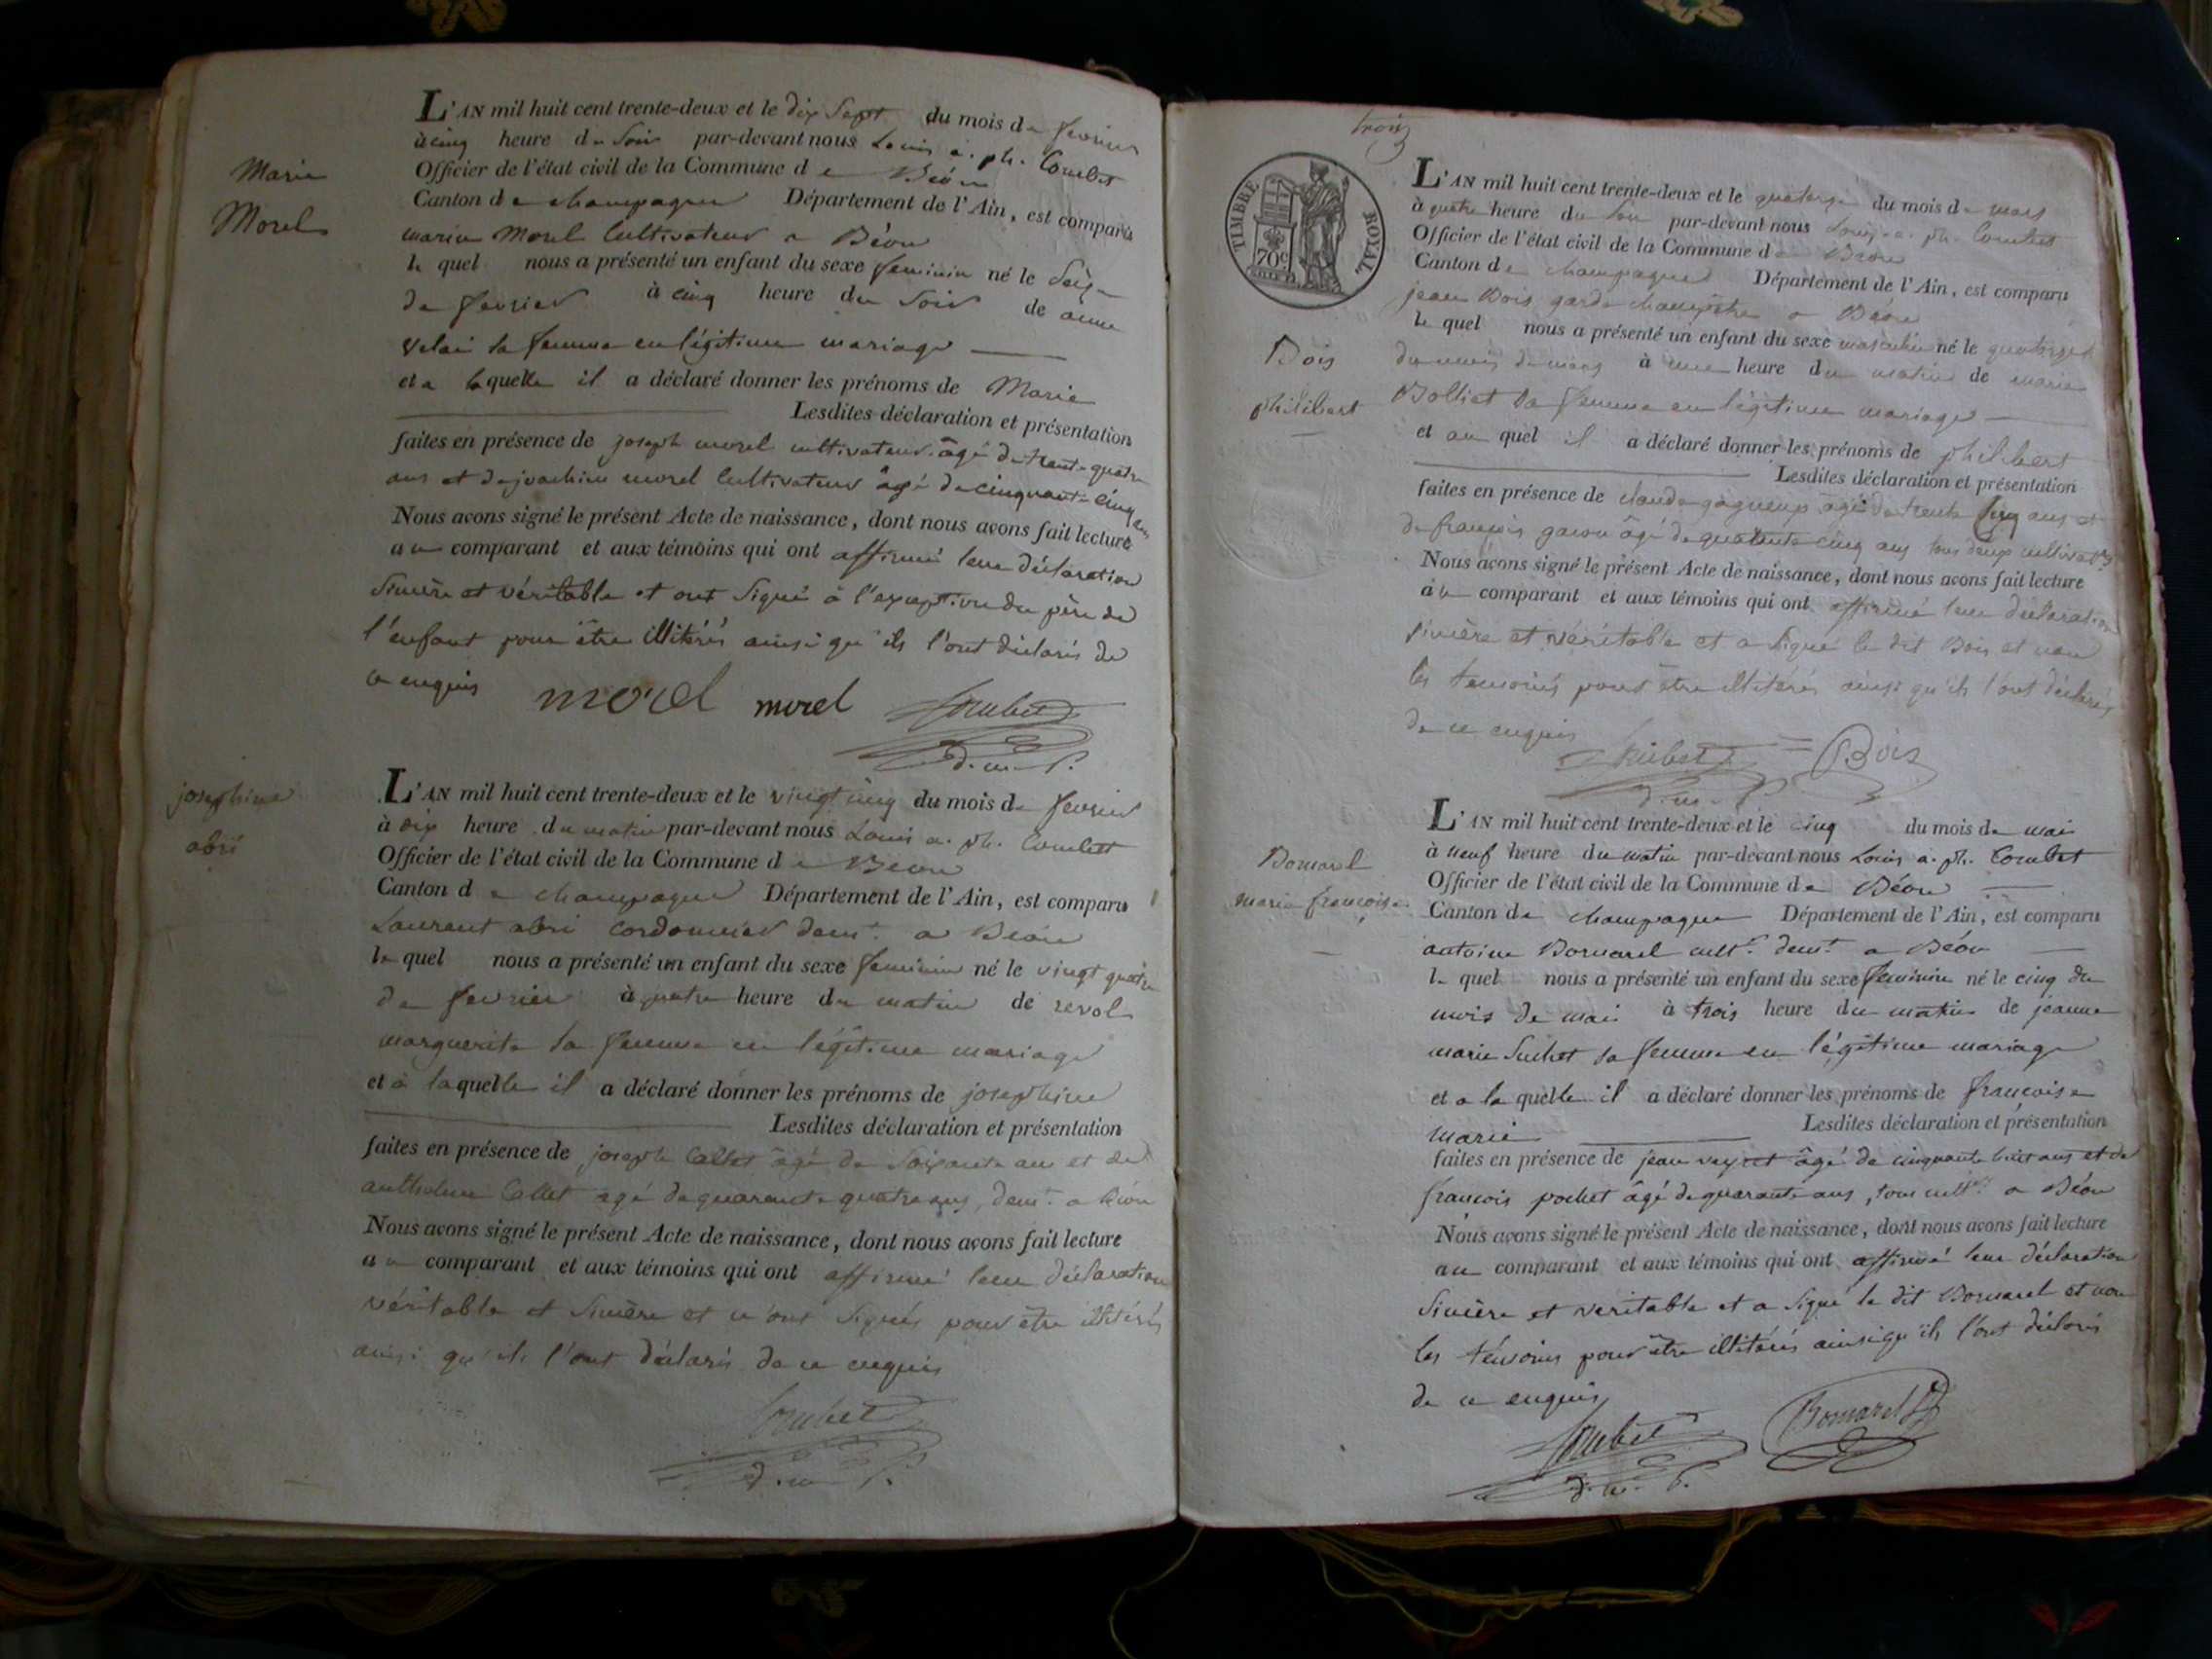 Marie
Morel
L'AN mil huit cent trente-deux et le dix Sept du mois de fevrier
à cinq heure du Soir par-devant nous Louis a. ph. Combet
Officier de l'état civil de la Commune de Béon
Canton de champagne Département de l'Ain, est comparu
marin Morel Cultivateur a Béon
le quel nous a présenté un enfant du sexe feminin né le Seize
de fevrier à cinq heure du Soir de anne
Velai sa femme en légitime mariage
et a laquelle il a déclaré donner les prénoms de Marie
Lesdites déclaration et présentation
faites en présence de joseph morel cultivateur âgé de trente quatre
ans et de joachim morel Cultivateur âgé de cinquante cinq ans
Nous avons signé le présent Acte de naissance, dont nous avons fait lecture
au comparant et aux témoins qui ont affirmé leur déclaration
Sincère et véritable et ont Signé à l'exception du père de
l'enfant pour être illitérés ainsi qu'ils l'ont déclarés de
ce enquis morel morel Combet
d. m. P.
josephine
abri
L'AN mil huit cent trente-deux et le vingt cinq du mois de fevrier
à dix heure du matin par-devant nous Louis a. ph. Combet
Officier de l'état civil de la Commune de Beon
Canton de champagne Département de l'Ain, est comparu
Laurent abri Cordonnier demt. a Béon
le quel nous a présenté un enfant du sexe feminin né le vingt quatre
de fevrier à quatre heure du matin de revol
marguerite sa femme en légitime mariage
et à laquelle il a déclaré donner les prénoms de josephine
Lesdites déclaration et présentation
faites en présence de joseph Callet âgé de Soixante ans et de
anthelme Callet agé de quarante quatre ans, demt. a Béon
Nous avons signé le présent Acte de naissance, dont nous avons fait lecture
au comparant et aux témoins qui ont affirmé leur déclaration
véritable et Sincère et n'ont Signés pour être illitérés
ainsi qu'ils l'ont déclarés de ce enquis
Combet
d. m. P.
trois
TIMBRE ROYAL
70c
Bois
philibert
L'AN mil huit cent trente-deux et le quatorze du mois de mars
à quatre heure du Soir par-devant nous Louis a. ph. Combet
Officier de l'état civil de la Commune de Béon
Canton de champagne Département de l'Ain, est comparu
jean Bois garde champêtre a Béon
le quel nous a présenté un enfant du sexe masculin né le quatorze
du mois de mars à une heure du matin de marie
Bolliet sa femme en légitime mariage
et au quel il a déclaré donner les prénoms de philibert
Lesdites déclaration et présentation
faites en présence de claude gagneux âgé de trente cinq ans et
de françois âgé de quarante cinq ans tous deux cultivatrs
Nous avons signé le présent Acte de naissance, dont nous avons fait lecture
au comparant et aux témoins qui ont affirmé leur déclaration
sincère et véritable et a signé le dit Bois et non
les temoins pour être illitérés ainsi qu'ils l'ont déclarés
de ce enquis Combet Bois
d. m. P.
Bornarel
marie françoise
L'AN mil huit cent trente-deux et le cinq du mois de mai
à neuf heure du matin par-devant nous Louis a. ph. Combet
Officier de l'état civil de la Commune de Béon
Canton de champagne Département de l'Ain, est comparu
antoine Bornarel cultr. demt. a Béon
le quel nous a présenté un enfant du sexe feminin né le cinq du
mois de mai à trois heure du matin de jeanne
marie Suchet sa femme en légitime mariage
et a la quelle il a déclaré donner les prénoms de françoise
Marie Lesdites déclaration et présentation
faites en présence de jean veyret âgé de cinquante huit ans et de
françois pochet âgé de quarante ans, tous cultrs. a Béon
Nous avons signé le présent Acte de naissance, dont nous avons fait lecture
au comparant et aux témoins qui ont affirmé leur déclaration
Sincère et veritable et a Signé le dit Bornarel et non
les témoins pour être illitérés ainsi qu'ils l'ont déclarés
de ce enquis
Combet Bornarel
d. m. P.